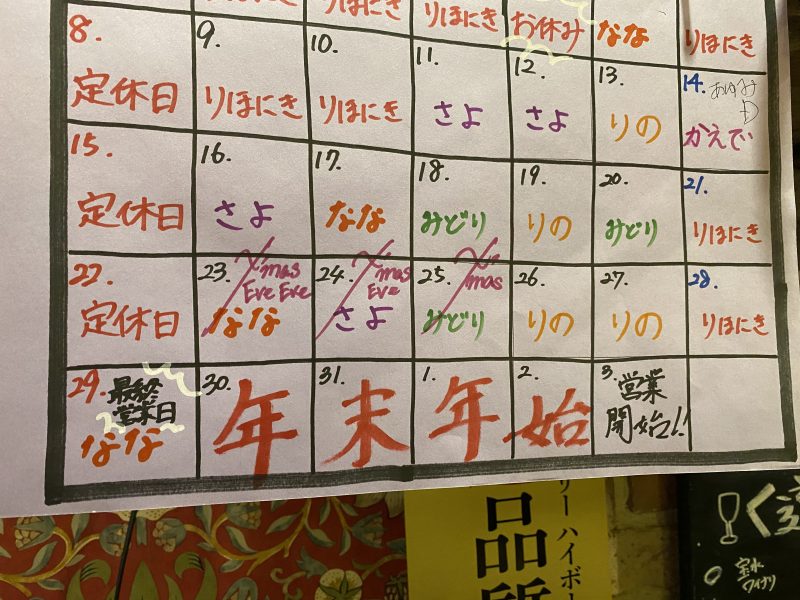 りほにき
りほにき
お休み
なな
りほにき
8.
定休日
9.
りほにき
10.
りほにき
11.
さよ
12.
さよ
13.
りの
14.
かえで
15.
定休日
16.
さよ
17.
なな
18.
みどり
19.
りの
20.
みどり
21.
りほにき
22.
定休日
23.
X'mas
Eve Eve
なな
24.
X'mas
Eve
さよ
25.
X'mas
みどり
26.
りの
27.
りの
28.
りほにき
29.
最終
営業日
なな
30.
年
31.
末
1.
年
2.
始
3.
営業
開始!!
品質
リー ハイボー